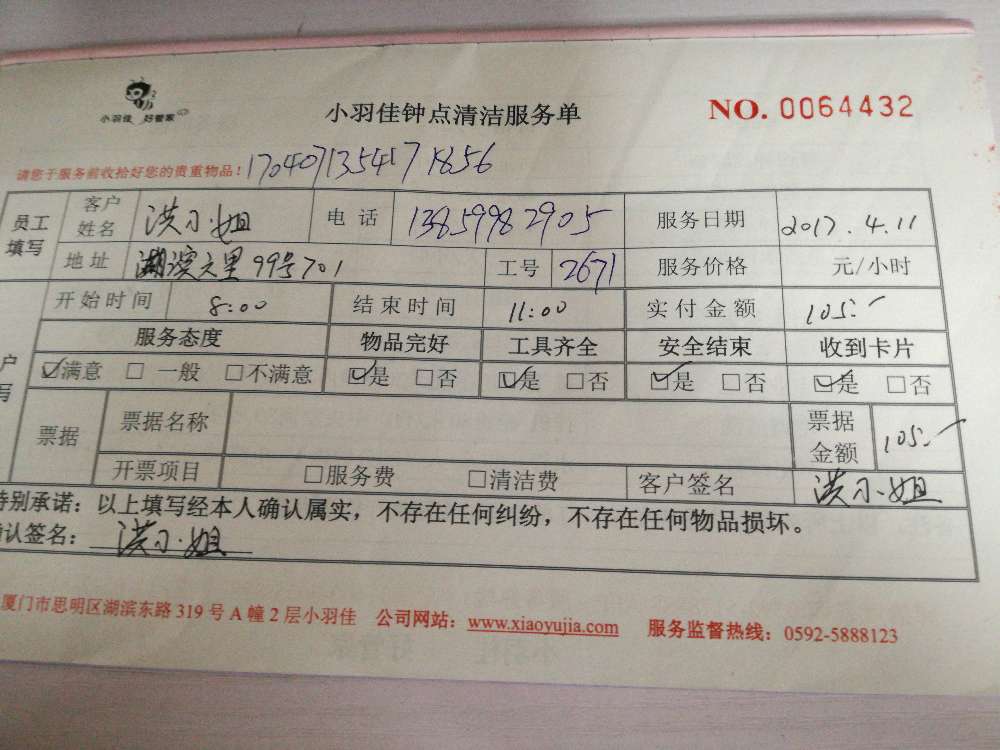 小羽佳 好管家
小羽佳钟点清洁服务单
NO. 0064432
请您于服务前收拾好您的贵重物品！
1704071354171856
员工填写 客户姓名 洪小姐 电话 13859982905 服务日期 2017.4.11
地址 湖滨六里99号701 工号 2671 服务价格 元/小时
开始时间 8:00 结束时间 11:00 实付金额 105.-
服务态度 物品完好 工具齐全 安全结束 收到卡片
☑满意 □一般 □不满意 ☑是 □否 ☑是 □否 ☑是 □否 ☑是 □否
户
写
票据 票据名称 票据金额 105.-
开票项目 □服务费 □清洁费 客户签名 洪小姐
特别承诺：以上填写经本人确认属实，不存在任何纠纷，不存在任何物品损坏。
认签名： 洪小姐
厦门市思明区湖滨东路319号A幢2层小羽佳 公司网站：www.xiaoyujia.com 服务监督热线：0592-5888123